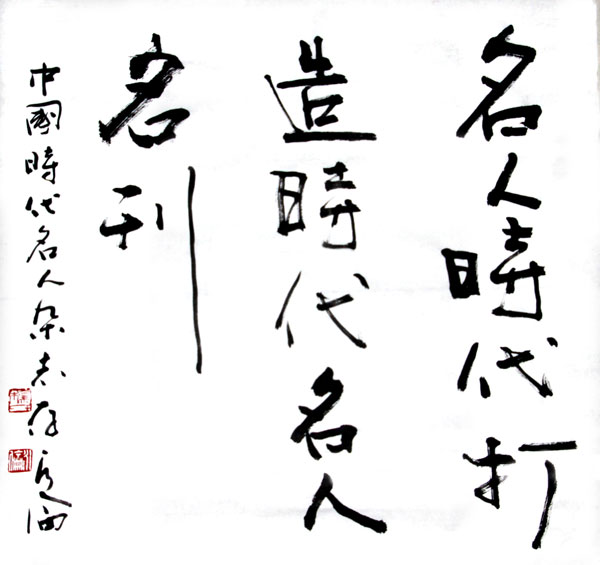 名人時代打
造時代名人
名刊
中國時代名人杂志存